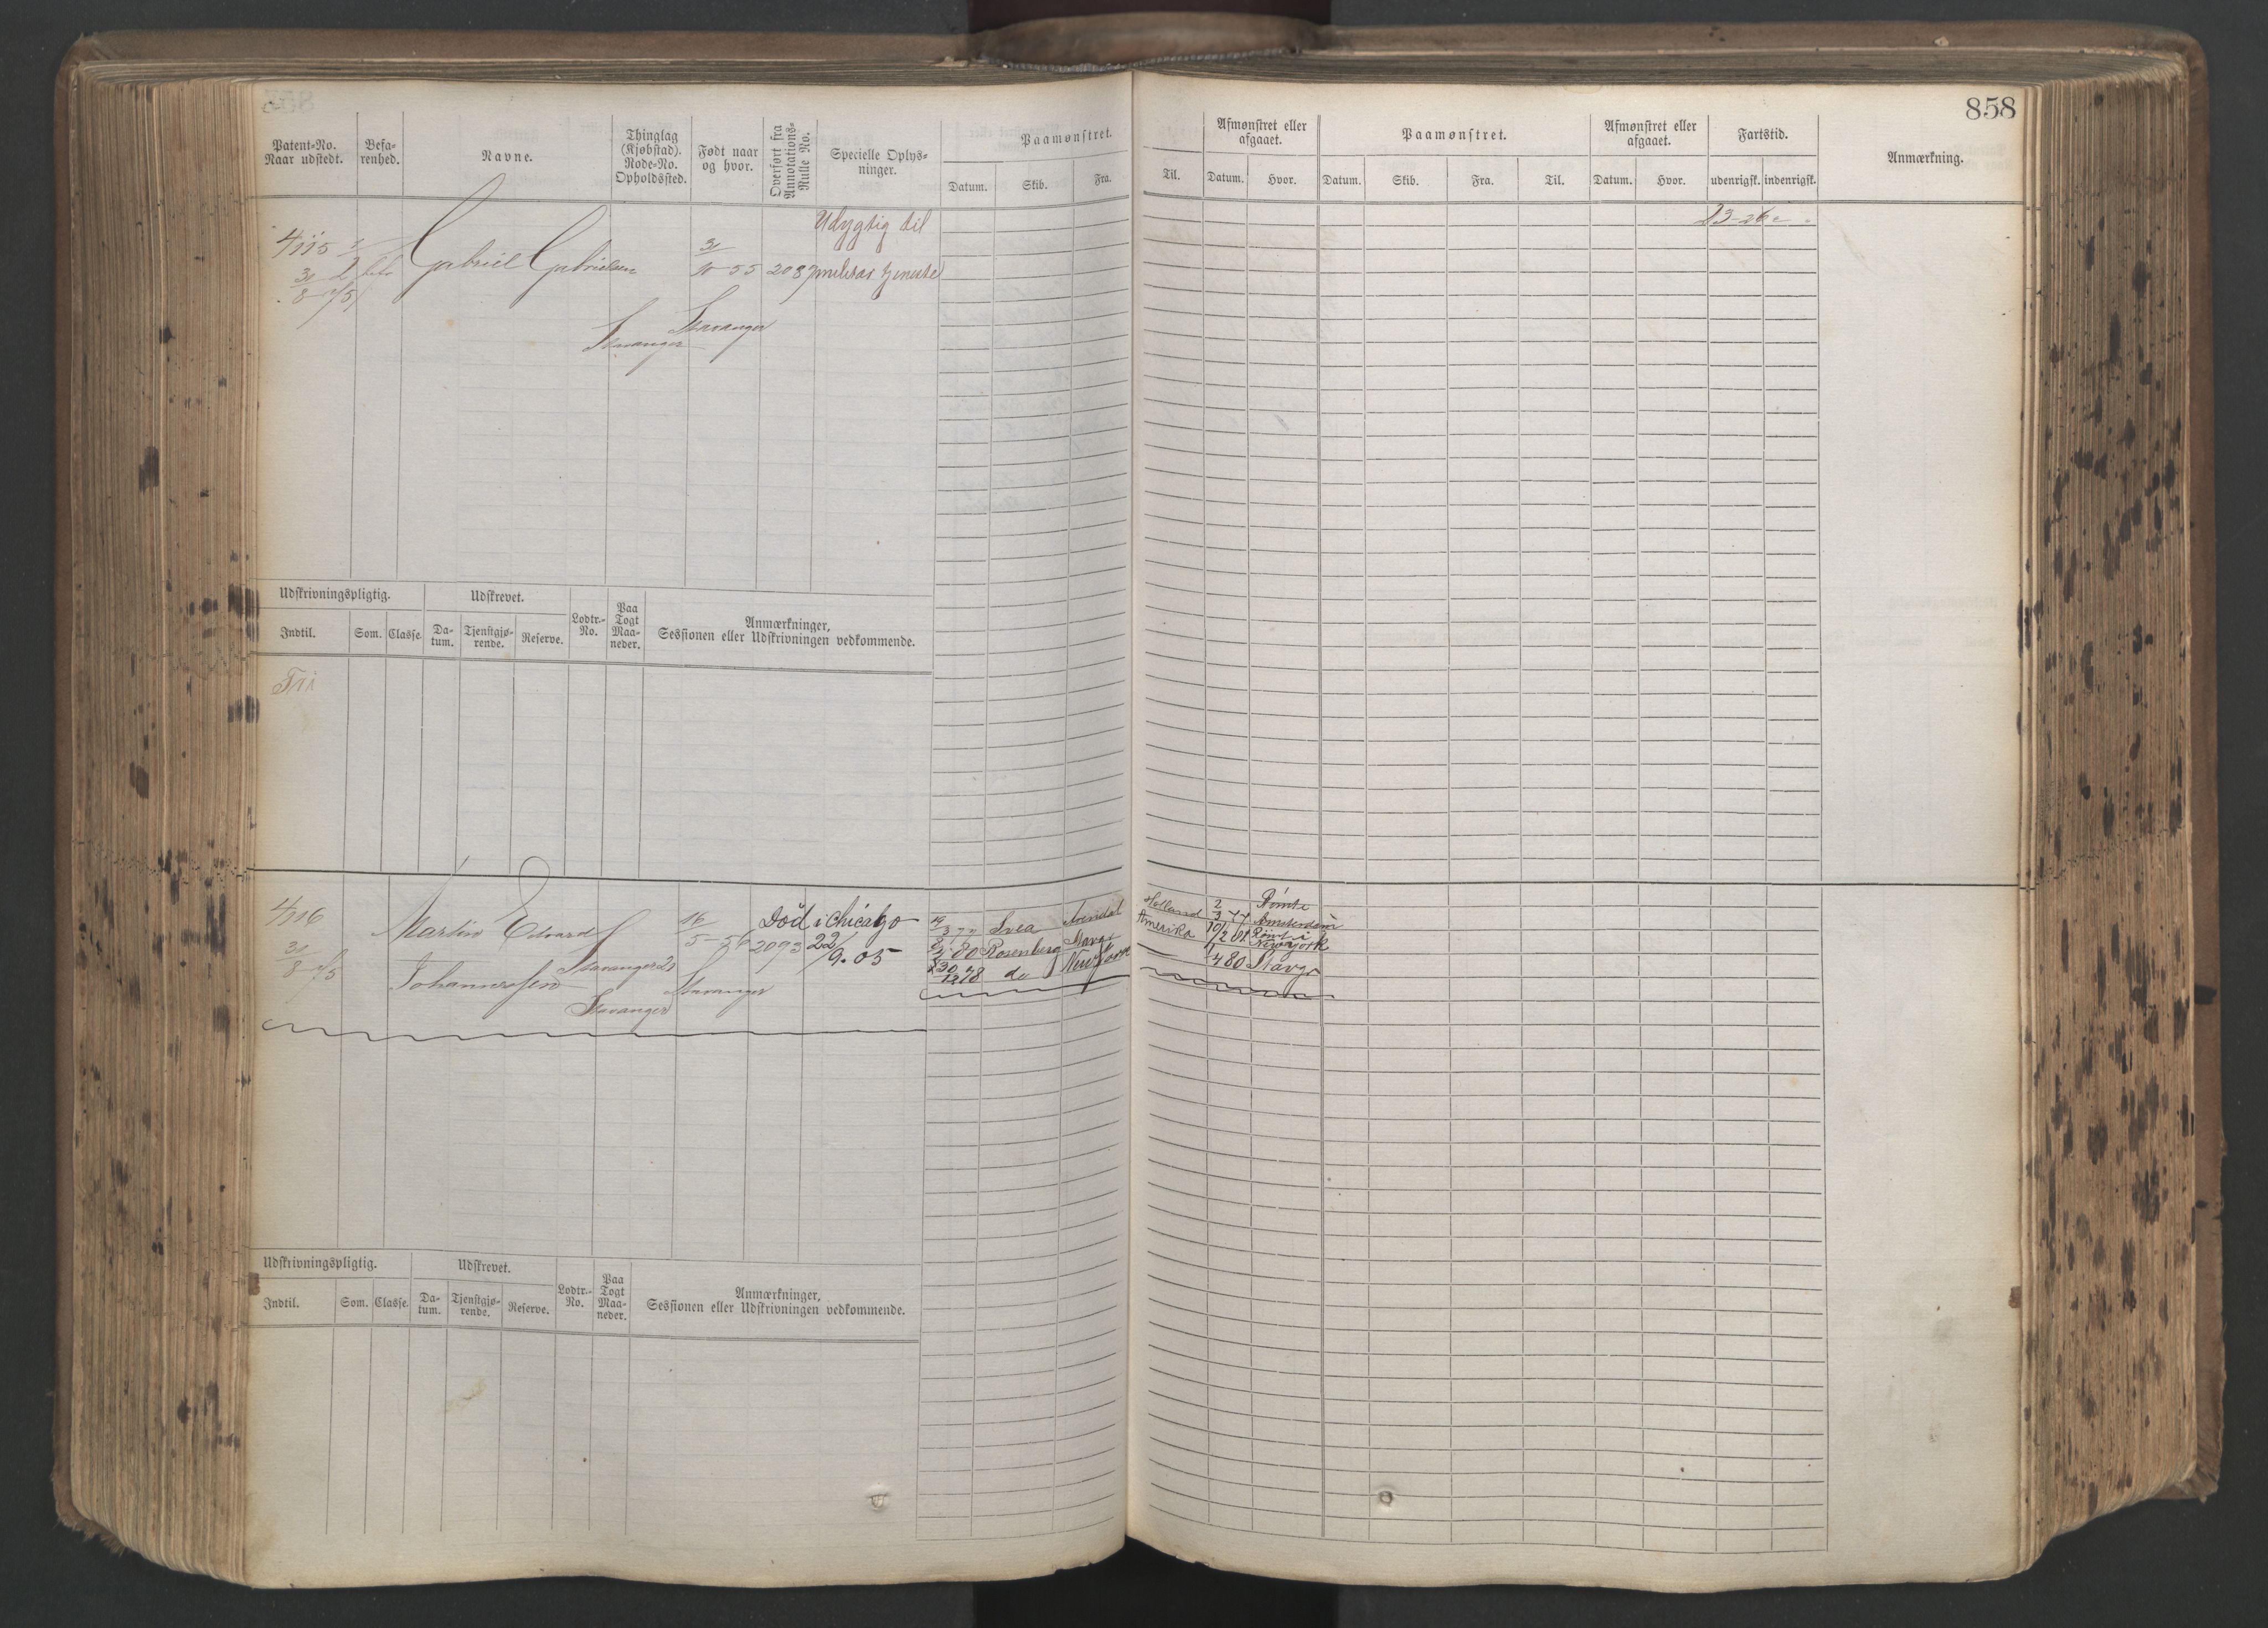 858
Patent-No. Naar udstedt.
Befarenhed.
Navne.
Thinglag (Kjøbstad). Rode-No. Opholdssted.
Født naar og hvor.
Overført fra Annotations-Rulle No.
Specielle Oplysninger.
Paamønstret.
Datum. Skib. Fra. Til.
Afmønstret eller afgaaet.
Datum. Hvor.
Paamønstret.
Datum. Skib. Fra. Til.
Afmønstret eller afgaaet.
Datum. Hvor.
Fartstid.
udenrigsk. indenrigsk.
Anmærkning.
Udygtig til
4115
Gabriel Gabrielsen
10-55 2087 militær tjeneste
Stavanger
Stavanger
Udskrivningspligtig. Udskrevet.
Lodtr.-No.
Paa Togt Maaneder.
Anmærkninger, Sessionen eller Udskrivningen vedkommende.
Indtil. Som. Classe. Datum. Tjenstgjørende. Reserve.
4116
Martin Edvard
Johannessen
Stavanger
Stavanger
16/5-56
Stavanger
2093
Død i Chicago
22/9.05
Svea Arendal Holland 2/3 77 Rømte Amsterdam
80 Rosenberg Stavgr Amerika Rømt i New York
30/12 78 do New York 4 80 Stavgr
Udskrivningspligtig. Udskrevet.
Lodtr.-No.
Paa Togt Maaneder.
Anmærkninger, Sessionen eller Udskrivningen vedkommende.
Indtil. Som. Classe. Datum. Tjenstgjørende. Reserve.